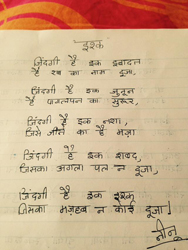 इश्क
जिंदगी है इक इबादत
है रब का नाम दूजा,
जिंदगी है इक जुनून
है पागलपन का सुरूर,
जिंदगी है इक नशा,
जिसे पीने का है मज़ा
जिंदगी है इक शब्द,
जिसका अगला पल न दूजा,
जिंदगी है इक इश्क
जिसका मज़हब न कोई दूजा।
नीनू